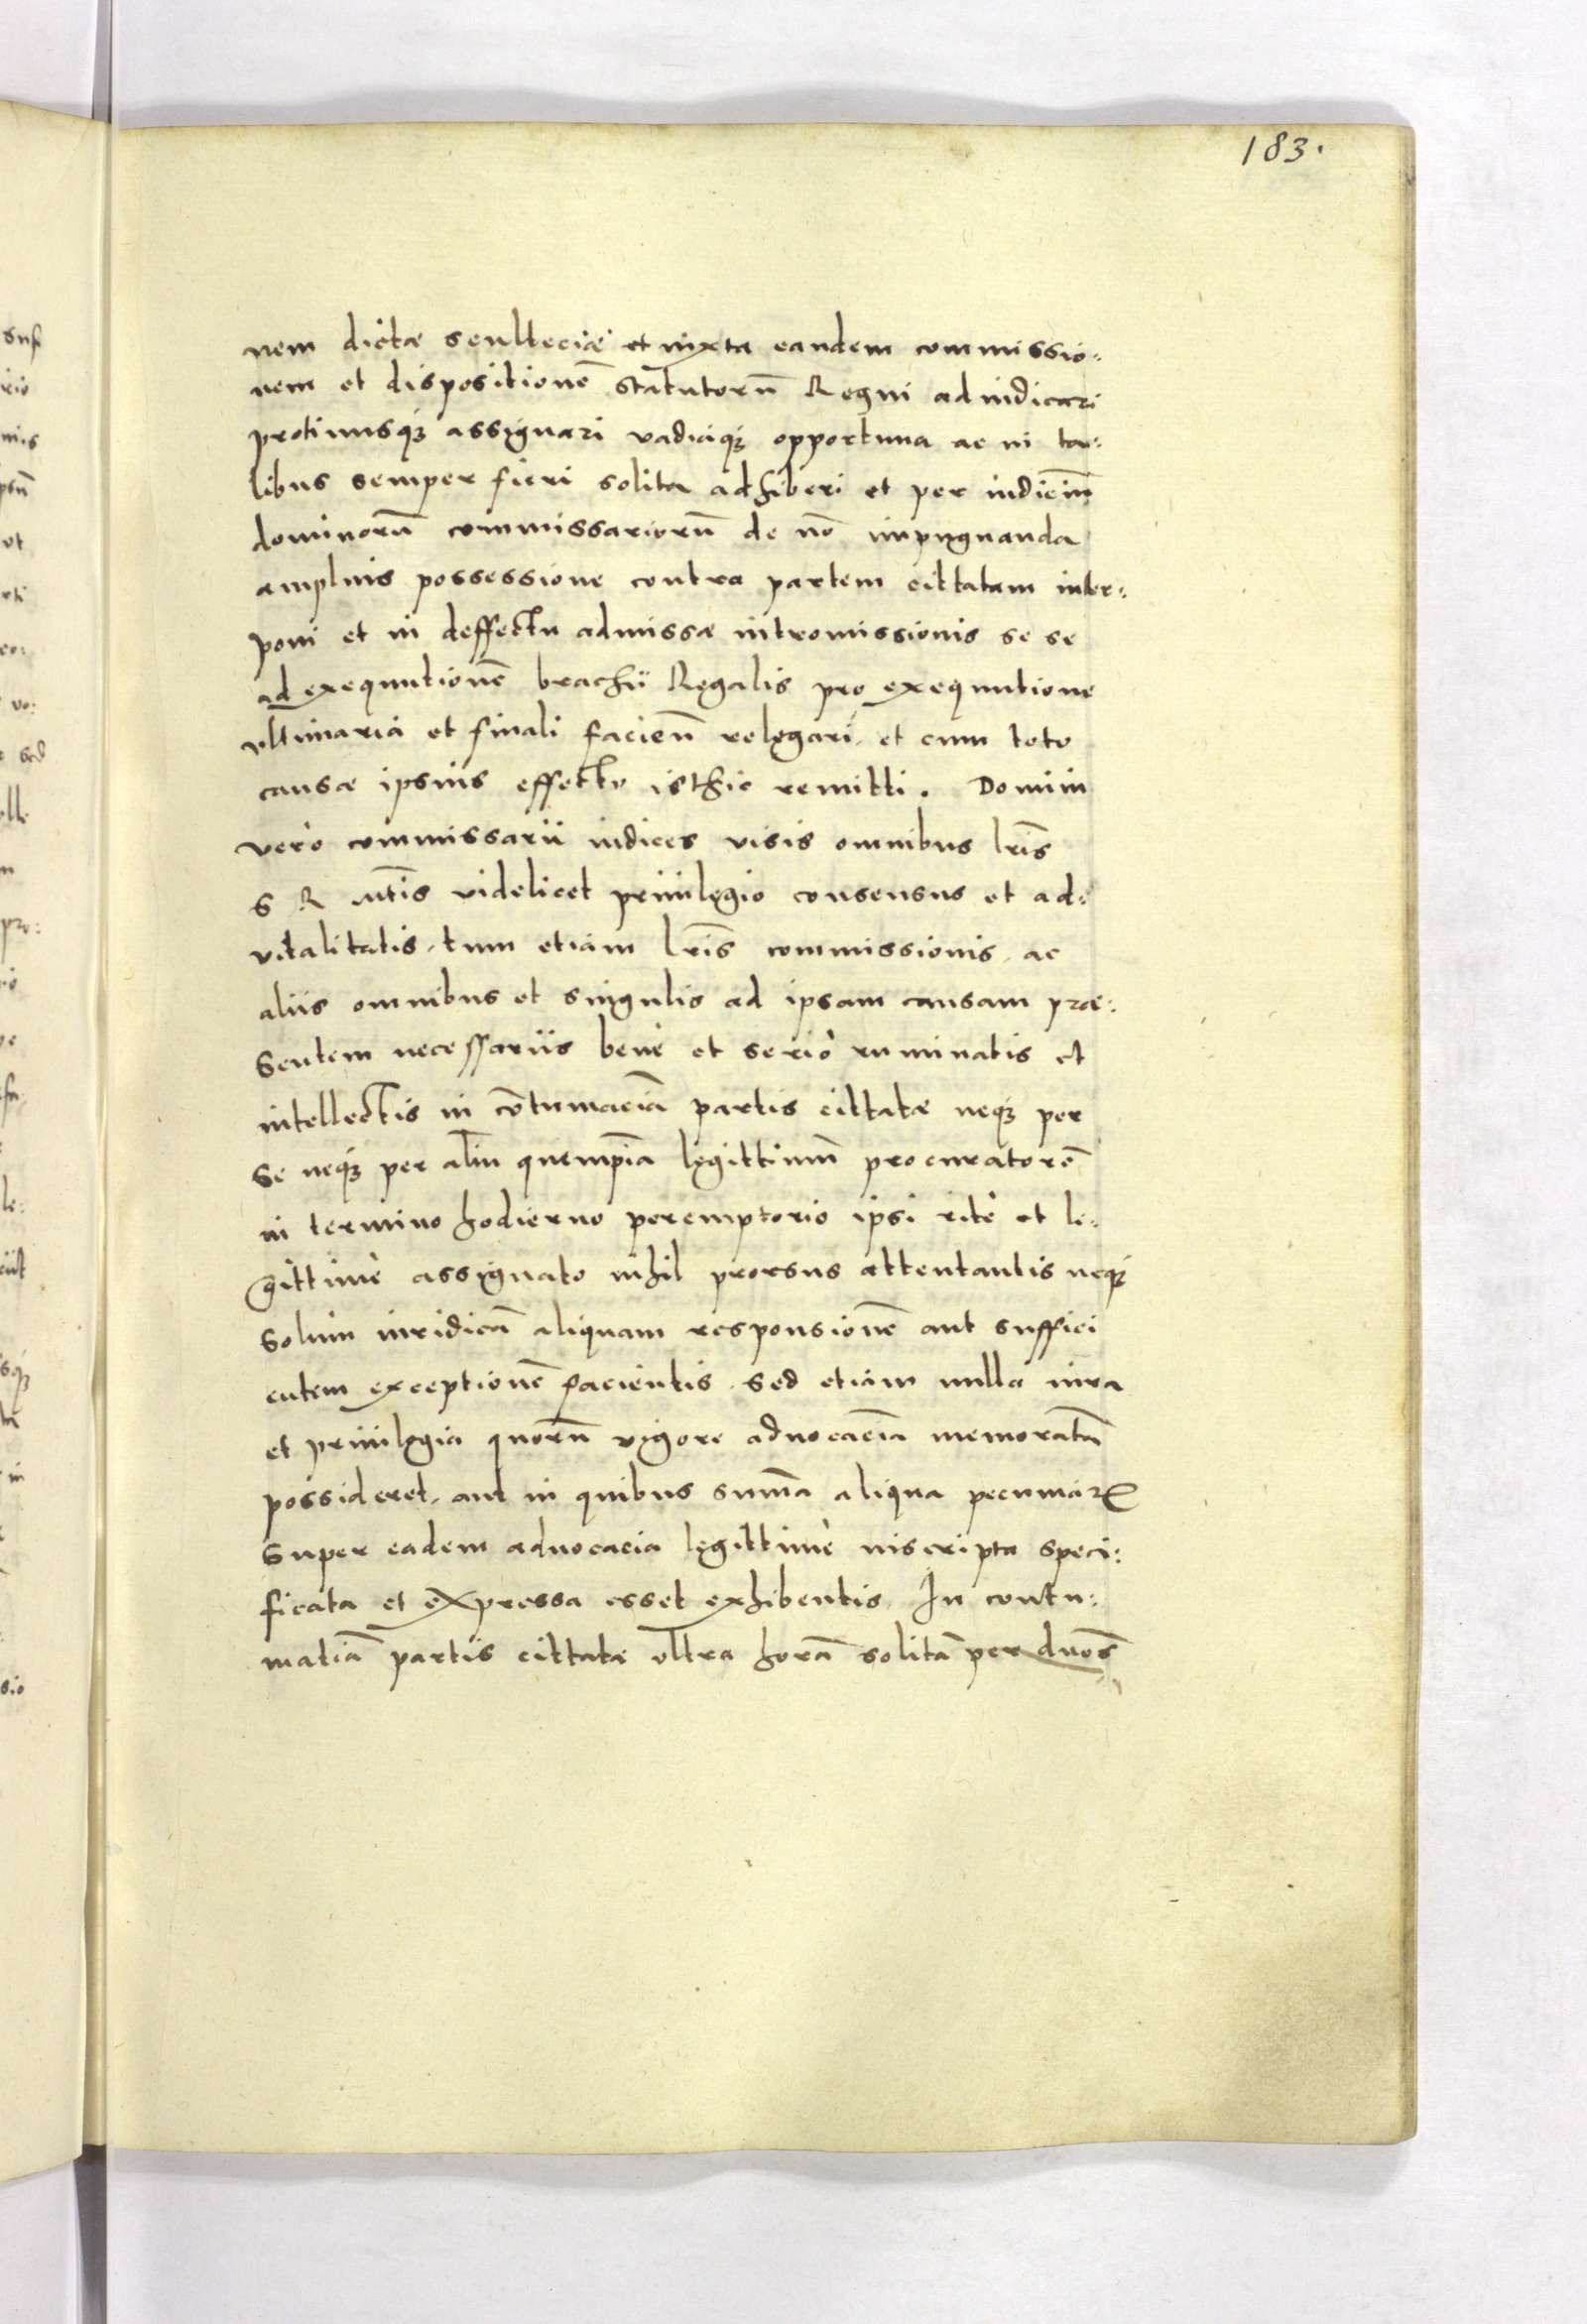 183.
nem dictæ sculteciæ et iuxta eandem commissio:
nem et dispositionē statutorū Regni adiudicari
protinusq₃ assignari vadiaq₃ opportuna ac in ta:
libus semper fieri solita adhiberi et per iudiciū
dominorū commissariorū de nō impugnanda
amplius possessione contra partem cittatam inter:
poni et in deffectu admissæ intromissionis se se
ad exequutionē brachii Regalis pro exequutione
vltimaria et finali facien̄ relegari, et cum toto
causæ ipsius effectu isthic remitti. Domini
verò commissarii iudices visis omnibus lrīs
S R Mtīs videlicet priuilegio consensus et ad:
vitalitatis, tum etiam lrīs commissionis, ac
aliis omnibus et singulis ad ipsam causam præ:
sentem necessariis benè et seriò ruminatis et
intellectis in cōtumaciā partis cittatæ neq₃ per
se neq₃ per aliū quempiā legittimū procuratorē
in termino hodierno peremptorio ipsi ritè et le:
gittimè assignato nihil prorsus attentantis neq₃
solum iuridicā aliquam responsionē aut suffici
entem exceptionē facientis, sed etiam nulla iura
et priuilegia quorū vigore aduocaciā memoratā
possideret, aut in quibus summa aliqua pecuniarꝫ
super eadem aduocacia legittimè inscripta speci:
ficata et expressa esset exhibentis. In contu:
matiā partis cittatæ vltra horā solitā per duos